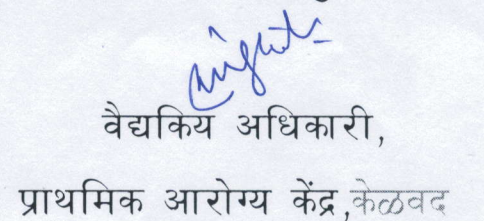 वैद्यकिय अधिकारी,
प्राथमिक आरोग्य केंद्र,केळवद